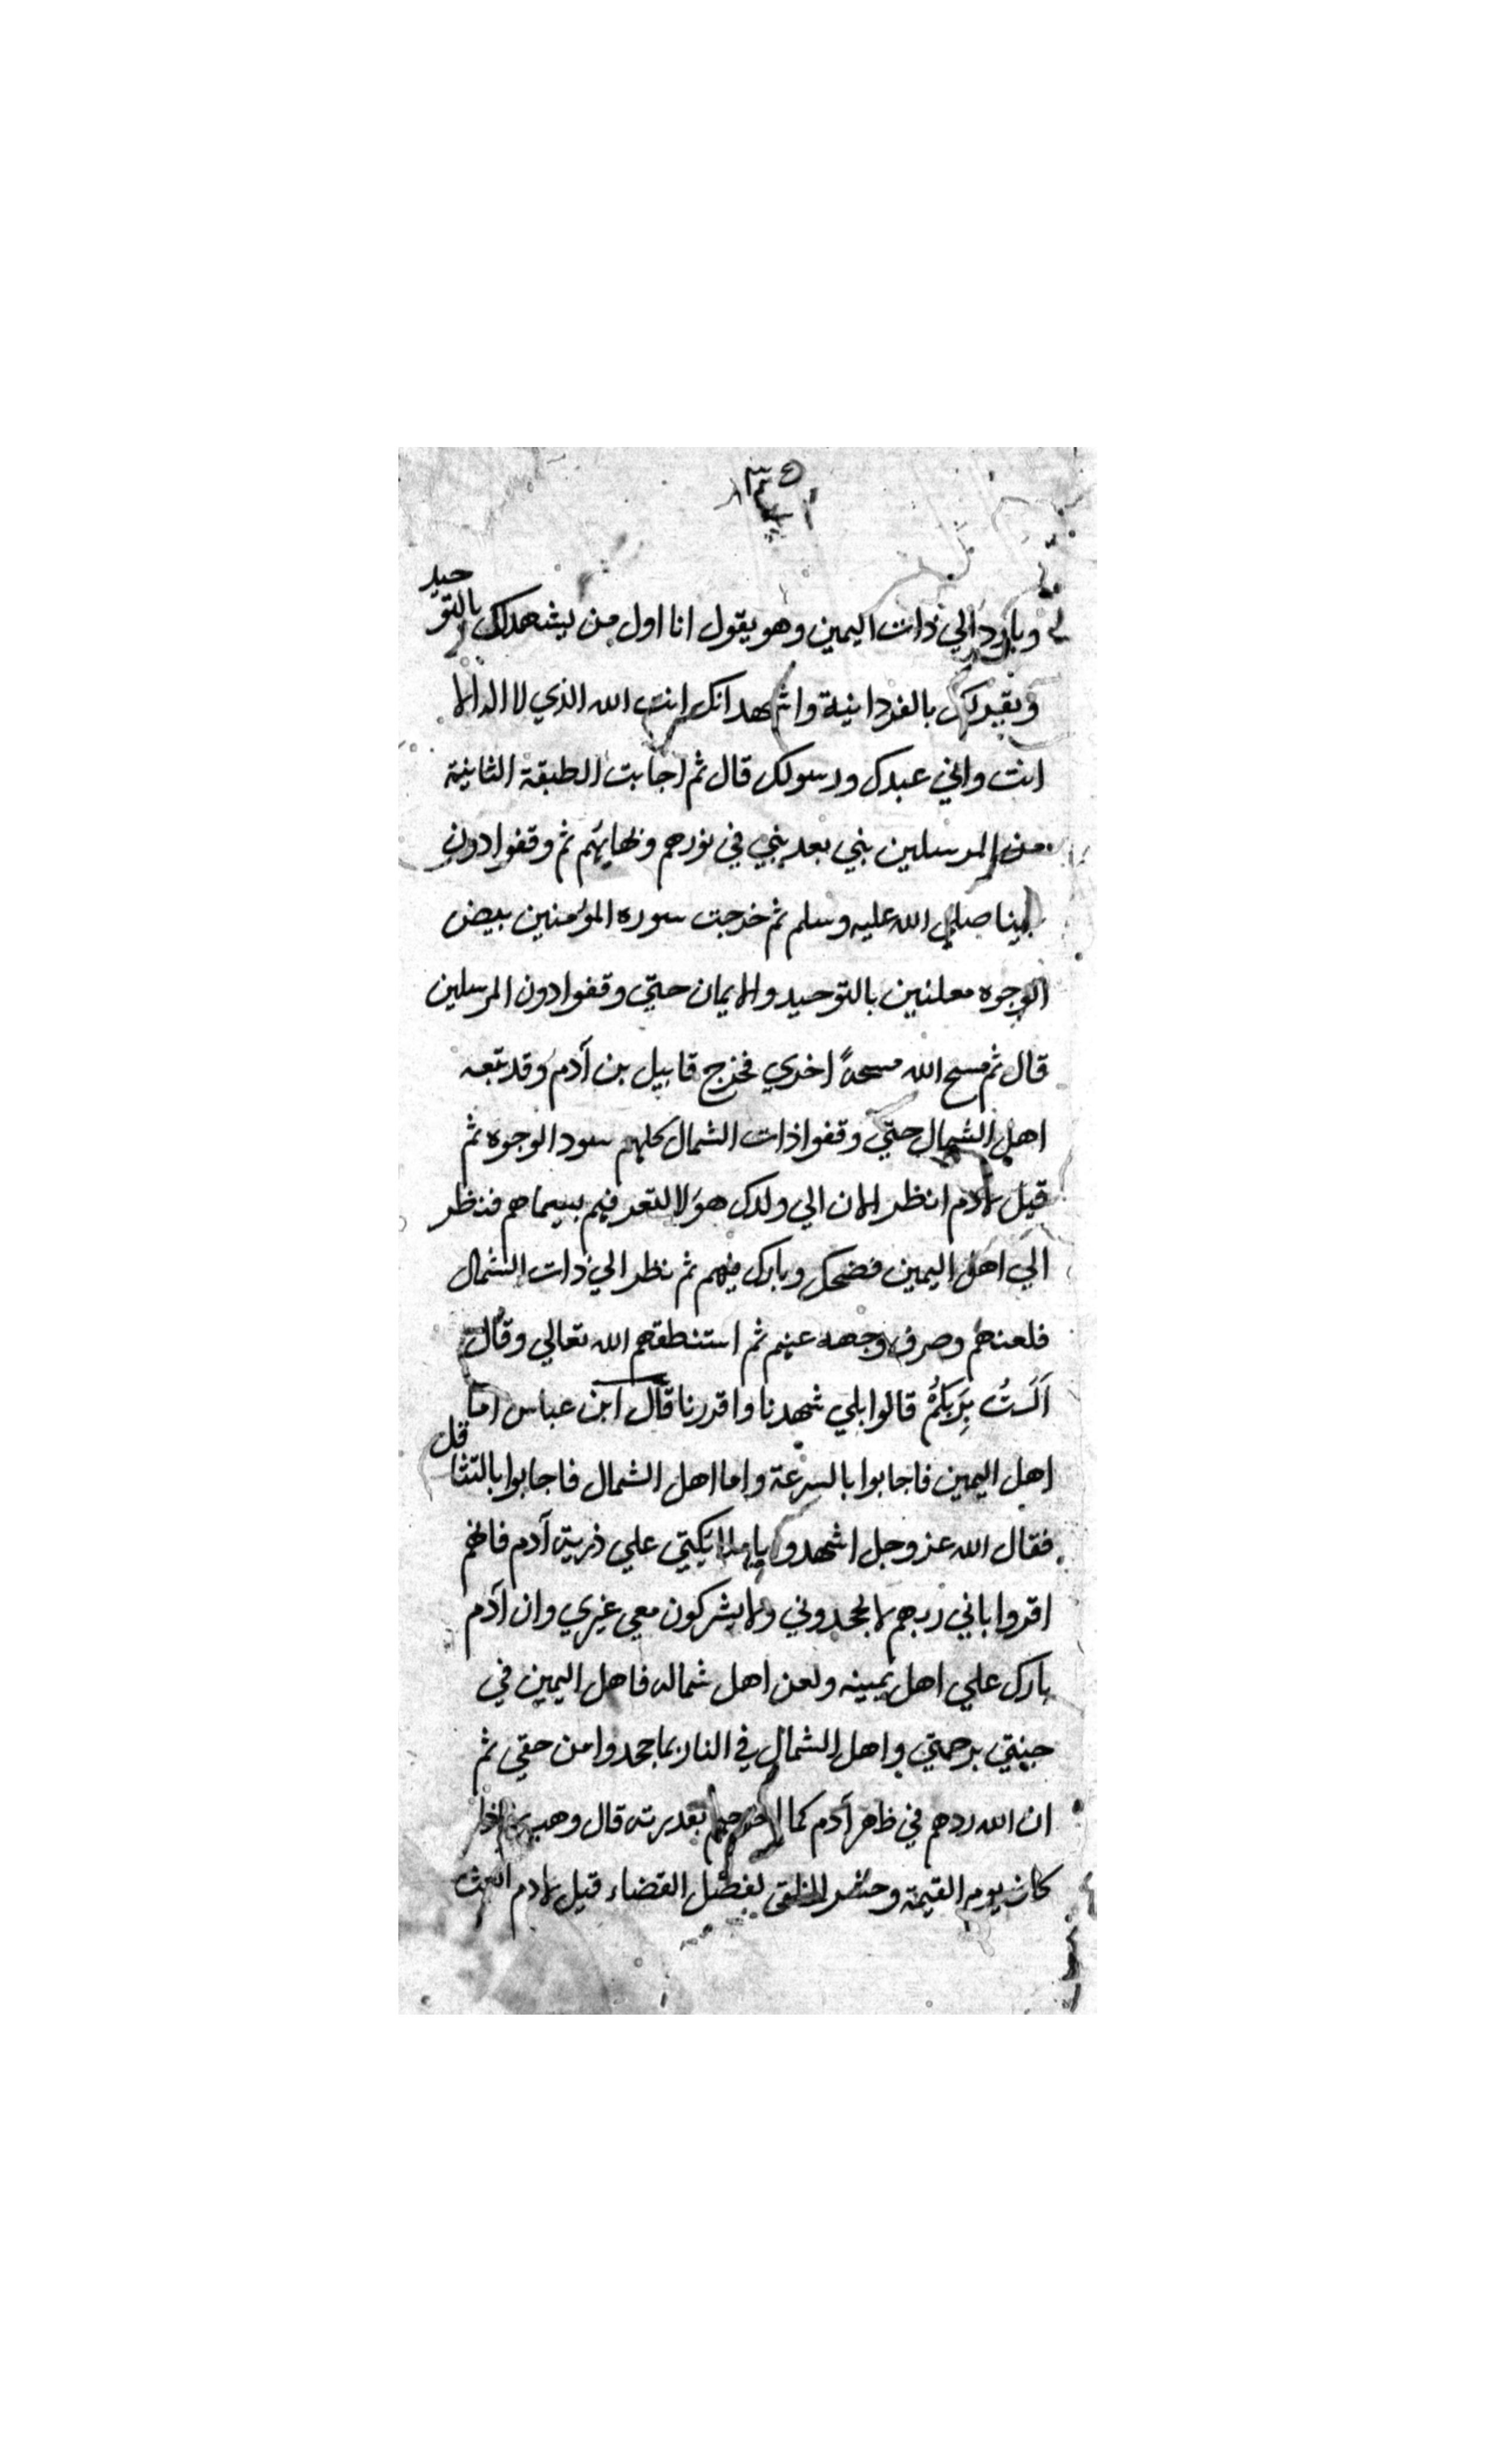 وبادر الي ذات اليمين وهو يقول انا اول من يشهد لك بالتوحيد
ويقر لك بالفردانية واشهد انك انت الله الذي لا اله الا
انت واني عبدك ورسولك قال ثم اجابت الطبقة الثانية
من المرسلين نبي بعد نبي في نورهم وبهايهم ثم وقفوا دون
نبينا صلي الله عليه وسلم ثم خرجت سوره المؤمنين بيض
الوجوه معلنين بالتوحيد والايمان حتي وقفوا دون المرسلين
قال ثم مسح الله مسحةً اخري فخرج قابيل بن آدم وقد تبعه
اهل الشمال حتي وقفوا ذات الشمال كلهم سود الوجوه ثم
قيل لادم انظر الان الي ولدك هؤلا لتعرفهم بسيماهم فنظر
الي اهل اليمين فضحك وبارك فيهم ثم نظر الي ذات الشمال
فلعنهم وصرف وجهه عنهم ثم استنطقهم الله تعالي وقال
اَلَسْتُ بِرَبِكُمْ قالوا بلي شهدنا واقررنا قال ابن عباس اما
اهل اليمين فاجابوا بالسرعة واما اهل الشمال فاجابوا بالتثاقل
فقال الله عز وجل اشهدوا يا ملائكتي علي ذرية آدم فانهم
اقروا باني ربهم لا يجحدوني ولا يشركون معي غيري وان آدم
بارك علي اهل يمينه ولعن اهل شماله فاهل اليمين في
جنتي برحمتي واهل الشمال في النار بما جحدوا من حقي ثم
ان الله ردهم في ظهر آدم كما اخرجهم بقدرته قال وهب اذا
كان يوم القيمة وحضر الخلق لفصل القضاء قيل لادم ابعث